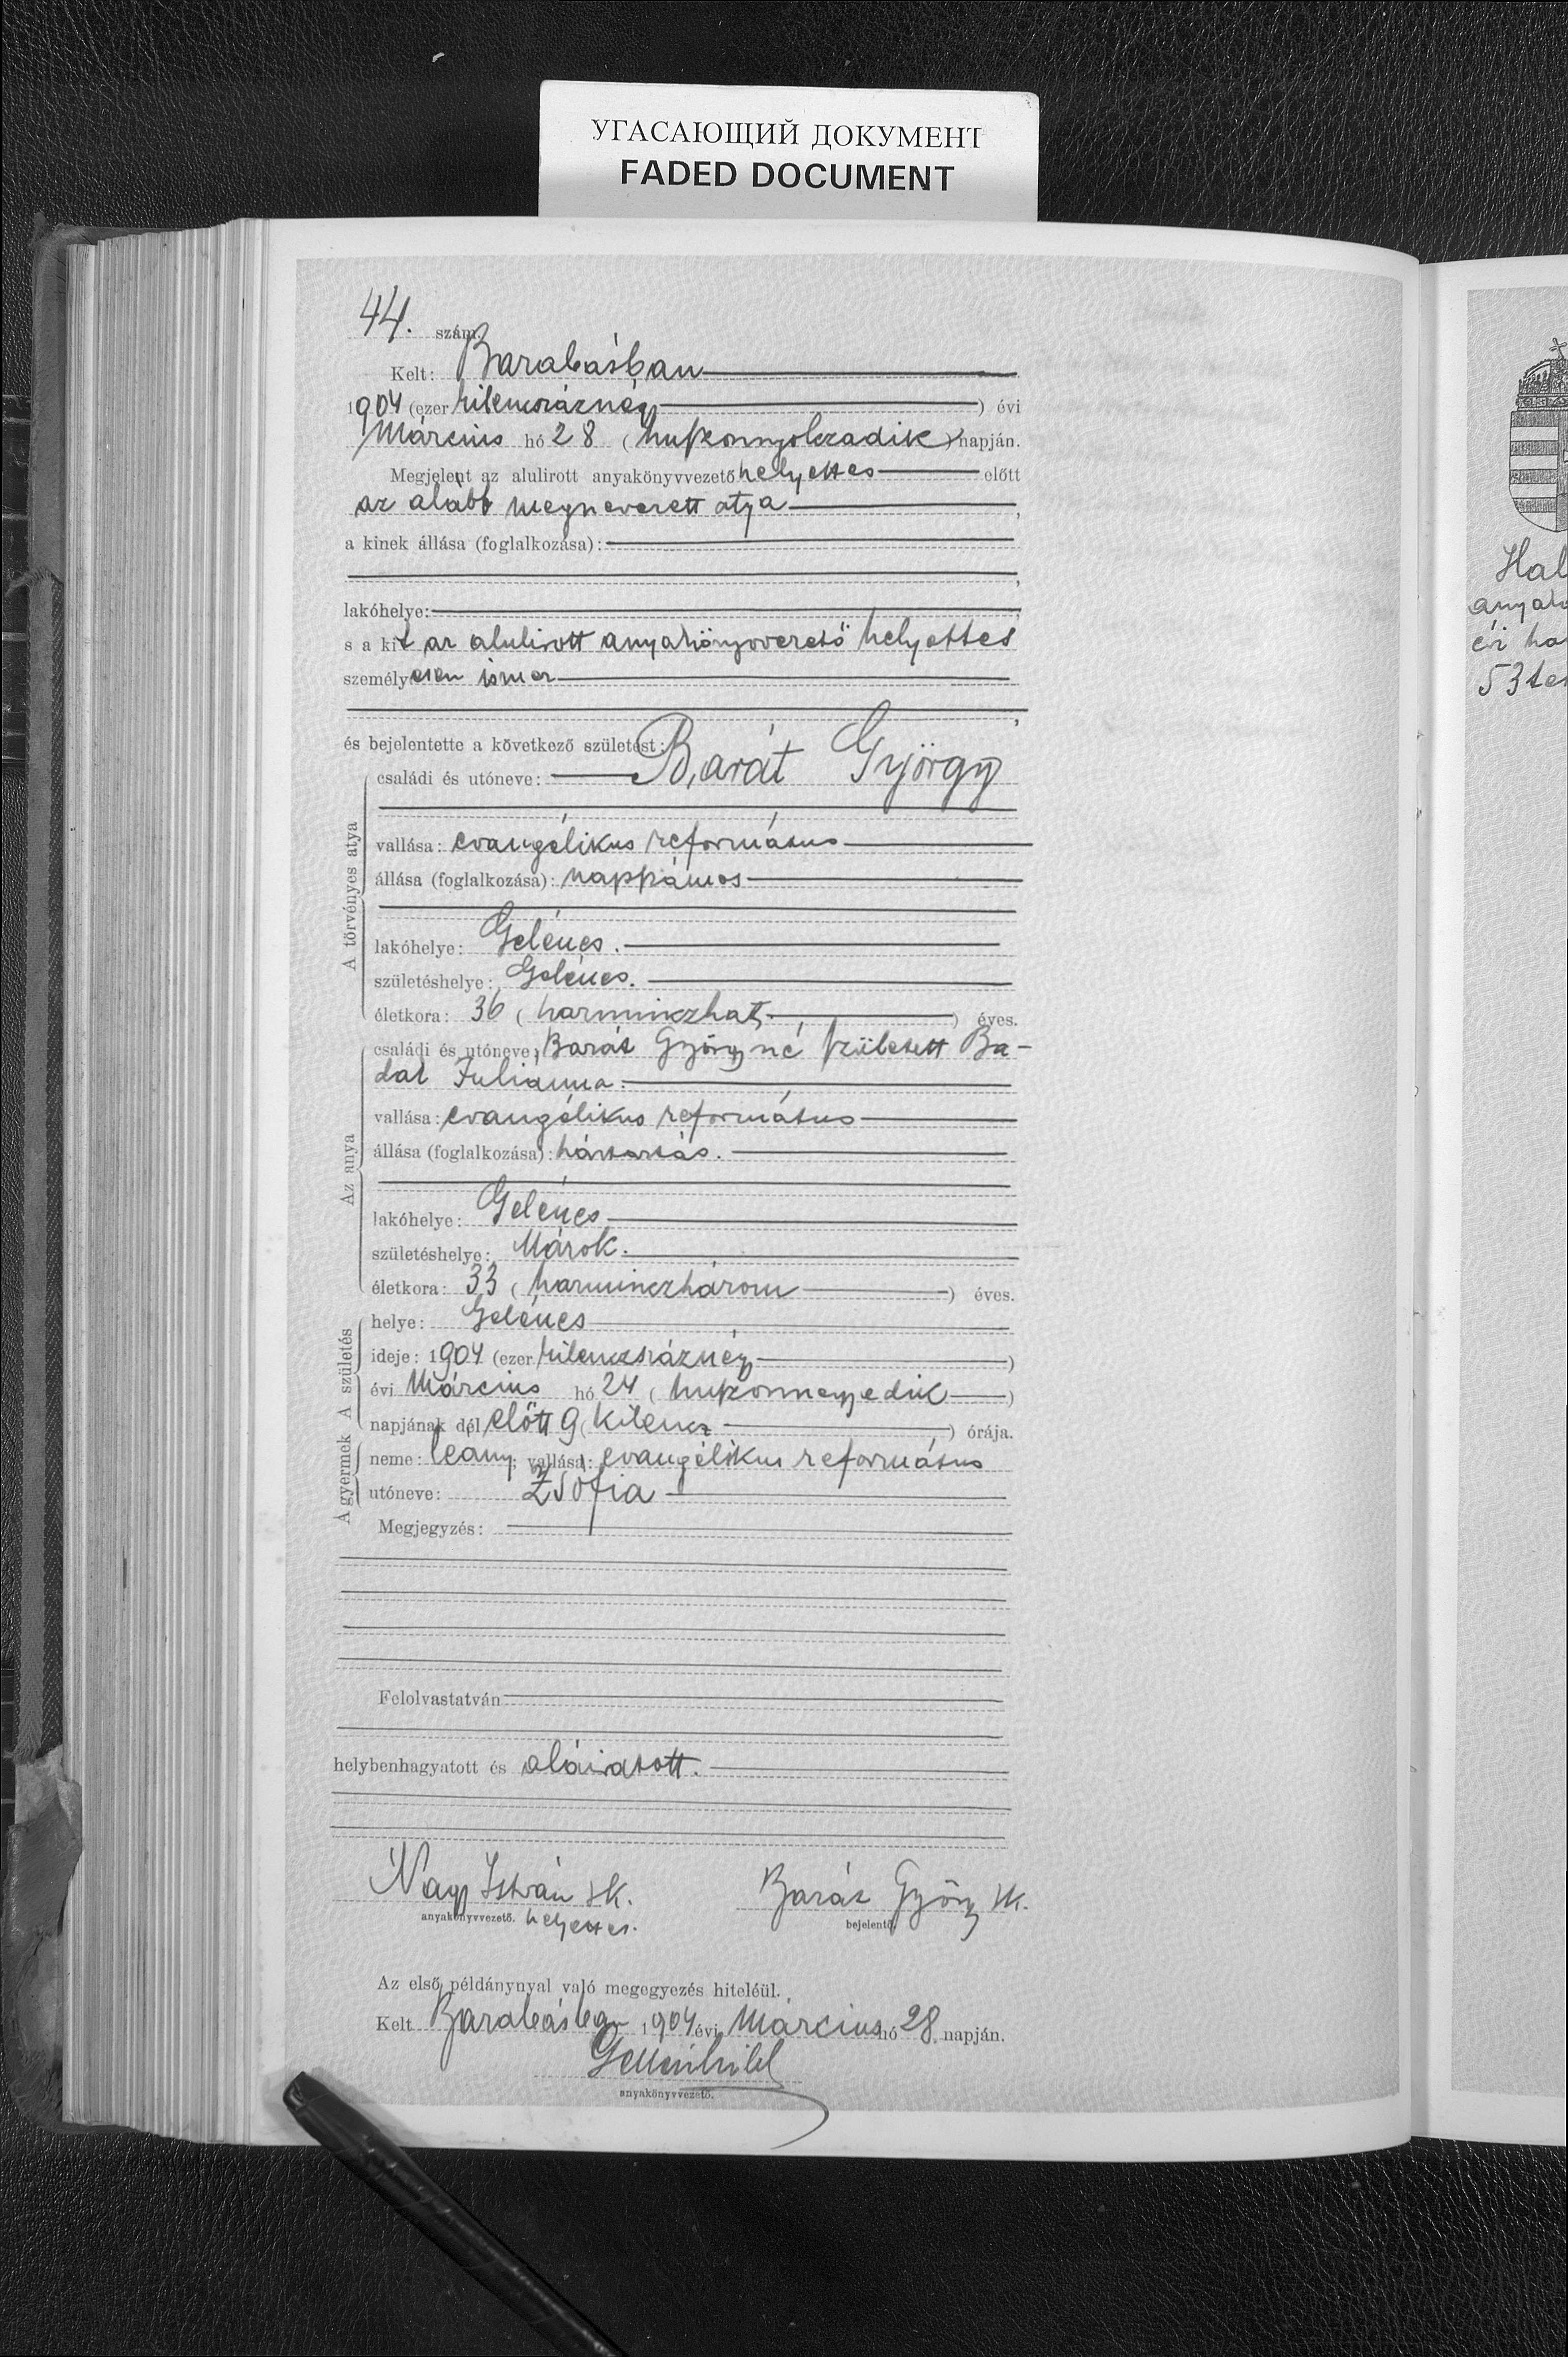 УГАСАЮЩИЙ ДОКУМЕНТ
FADED DOCUMENT
44. szám.
Kelt: Barabásban
1904 (ezer kilenczáznégy) évi
Márczius hó 28 (huszonnyolczadik) napján.
Megjelent az alulirott anyakönyvvezető helyettes előtt
az alább megnevezett atya,
a kinek állása (foglalkozása):
lakóhelye:
s a kit az alulirott anyakönyvvezető helyettes
személyesen ismer
és bejelentette a következő születést:
A törvényes atya
családi és utóneve: Barát György
vallása: evangélikus református
állása (foglalkozása): napszámos
lakóhelye: Gelénes.
születéshelye: Gelénes.
életkora: 36 (harminczhat) éves.
Az anya
családi és utóneve: Barát Györgyné született Ba-
dat Juliánna.
vallása: evangélikus református
állása (foglalkozása): háztartás.
lakóhelye: Gelénes
születéshelye: Márok.
életkora: 33 (harminczhárom) éves.
A születés
helye: Gelénes
ideje: 1904 (ezer kilenczszáznégy)
évi Márczius hó 24 (huszonnegyedik)
napjának dél előtt 9 (kilencz) órája.
A gyermek
neme: leány; vallása: evangélikus református
utóneve: Zsófia
Megjegyzés:
Felolvastatván
helybenhagyatott és aláiratott.
Nagy István sk. Barát György sk.
anyakönyvvezető. helyettes. bejelentő.
Az első példánynyal való megegyezés hiteléül.
Kelt Barabásban 1904 évi Márczius hó 28. napján.
anyakönyvvezető.
Hal
anyak
évi ha
53